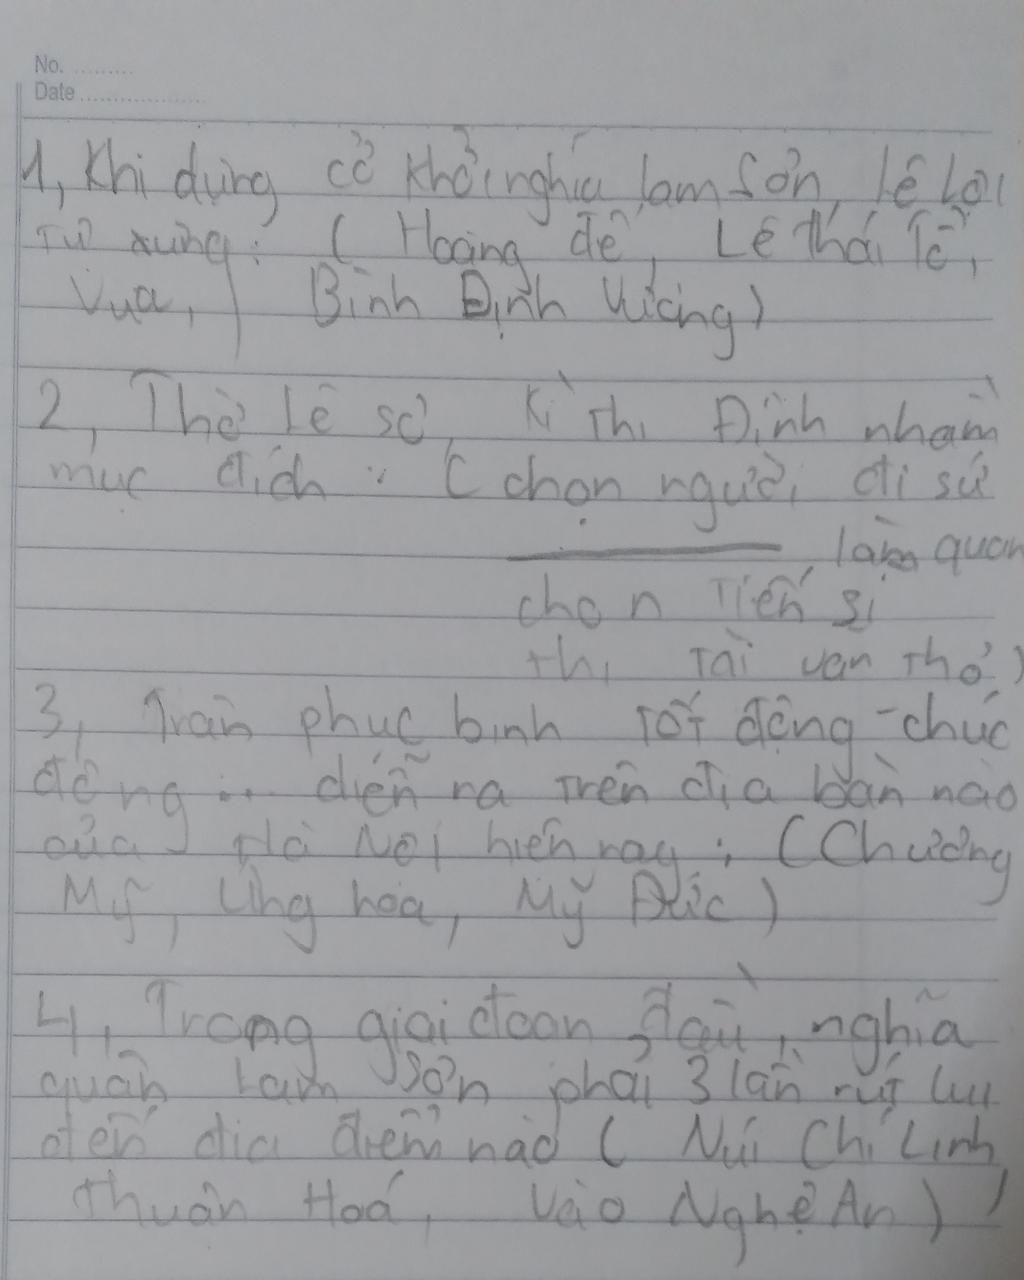 No. .........
Date ...................
1, Khi dựng cờ khởi nghĩa lam Sơn, lê Lợi
Tự xưng: ( Hoàng đế, Lê thái Tổ,
Vua, Bình Định Vương)
2, Thờ Lê sơ, Kì Thi Đình nhằm
mục đích : ( chọn người đi sứ
làm quan
chọn Tiến sĩ
thi Tài văn Thơ)
3, Trận phục binh Tốt động - chúc
động ... diễn ra Trên địa bàn nào
của Hà Nội hiện nay : (Chương
Mỹ, Ứng hòa, Mỹ Đức)
4, Trong giai đoạn đầu, nghĩa
quân Lam Sơn phải 3 lần rút lui
đến địa điểm nào ( Núi Chí Linh,
Thuận Hoá, Vào Nghệ An)